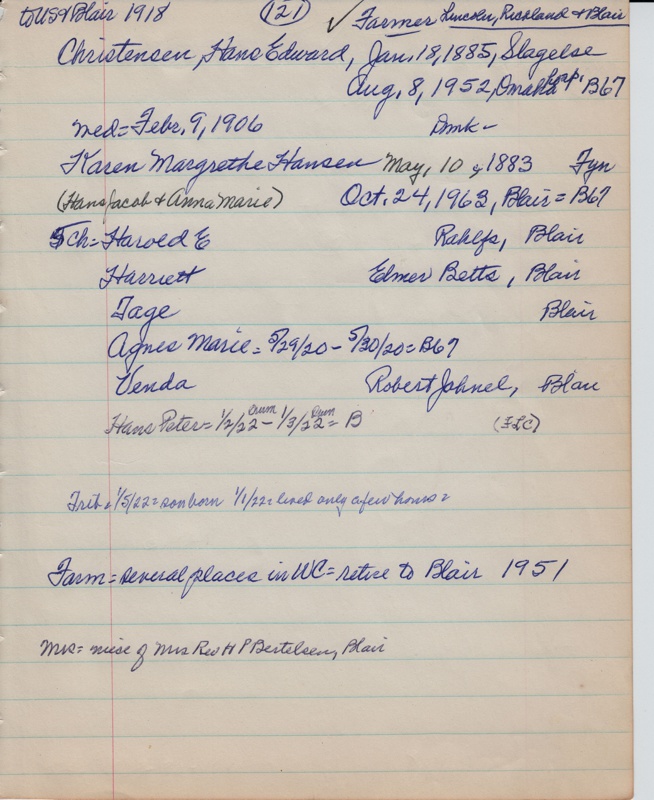 to USA & Blair 1918 (121) ✓ Farmer Lincoln, Richland & Blair
Christensen, Hans Edward, Jan. 18, 1885, Slagelse
Aug. 8, 1952, Omaha Hosp. B67
Wed = Febr. 9, 1906 Dmk -
Karen Margrethe Hansen May, 10, 1883 Fyn
(Hans Jacob & Anna Marie) Oct. 24, 1963, Blair = B67
5 Ch = Harold E Rahlfs, Blair
Harriett Elmer Betts, Blair
Tage Blair
Agnes Marie = 5/29/20 - 5/30/20 = B67
Venda Robert Johnel, Blair
Hans Peter = 1/2/22 - 1/3/22 = B (FLC)
Trib = 1/5/22 = son born 1/1/22 = lived only a few hours =
Farm = several places in WC = retire to Blair 1951
Mrs = niese of Mrs Rev H P Bertelsen, Blair